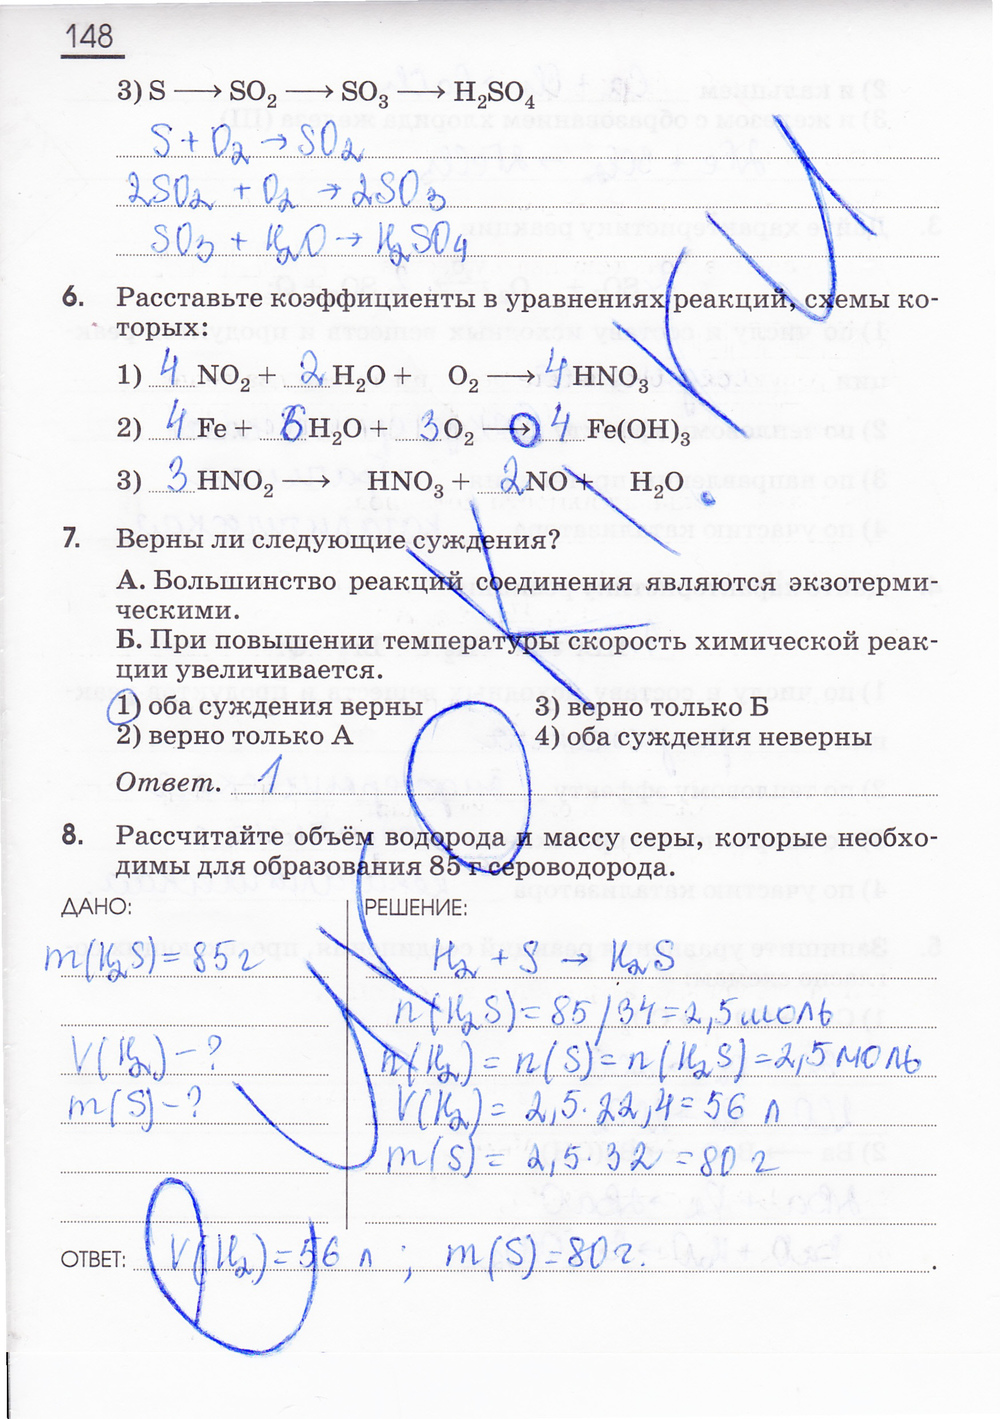 148
3) S ⟶ SO₂ ⟶ SO₃ ⟶ H₂SO₄
S + O₂ → SO₂
2SO₂ + O₂ → 2SO₃
SO₃ + H₂O → H₂SO₄
6. Расставьте коэффициенты в уравнениях реакций, схемы ко-
торых:
1) 4 NO₂ + 2 H₂O + O₂ ⟶ 4 HNO₃
2) 4 Fe + 6 H₂O + 3 O₂ ⟶ 4 Fe(OH)₃
3) 3 HNO₂ ⟶ HNO₃ + 2 NO + H₂O
7. Верны ли следующие суждения?
А. Большинство реакций соединения являются экзотерми-
ческими.
Б. При повышении температуры скорость химической реак-
ции увеличивается.
1) оба суждения верны 3) верно только Б
2) верно только А 4) оба суждения неверны
Ответ. 1
8. Рассчитайте объём водорода и массу серы, которые необхо-
димы для образования 85 г сероводорода.
ДАНО: РЕШЕНИЕ:
m(H₂S) = 85 г H₂ + S → H₂S
n(H₂S) = 85/34 = 2,5 моль
V(H₂) – ? n(H₂) = n(S) = n(H₂S) = 2,5 моль
m(S) – ? V(H₂) = 2,5 · 22,4 = 56 л
m(S) = 2,5 · 32 = 80 г
ОТВЕТ: V(H₂) = 56 л ; m(S) = 80 г.